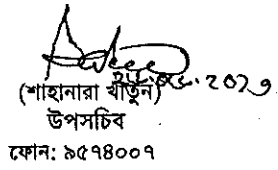 (শাহানারা খাতুন)
উপসচিব
ফোন: ৯৫৭৪০০৭